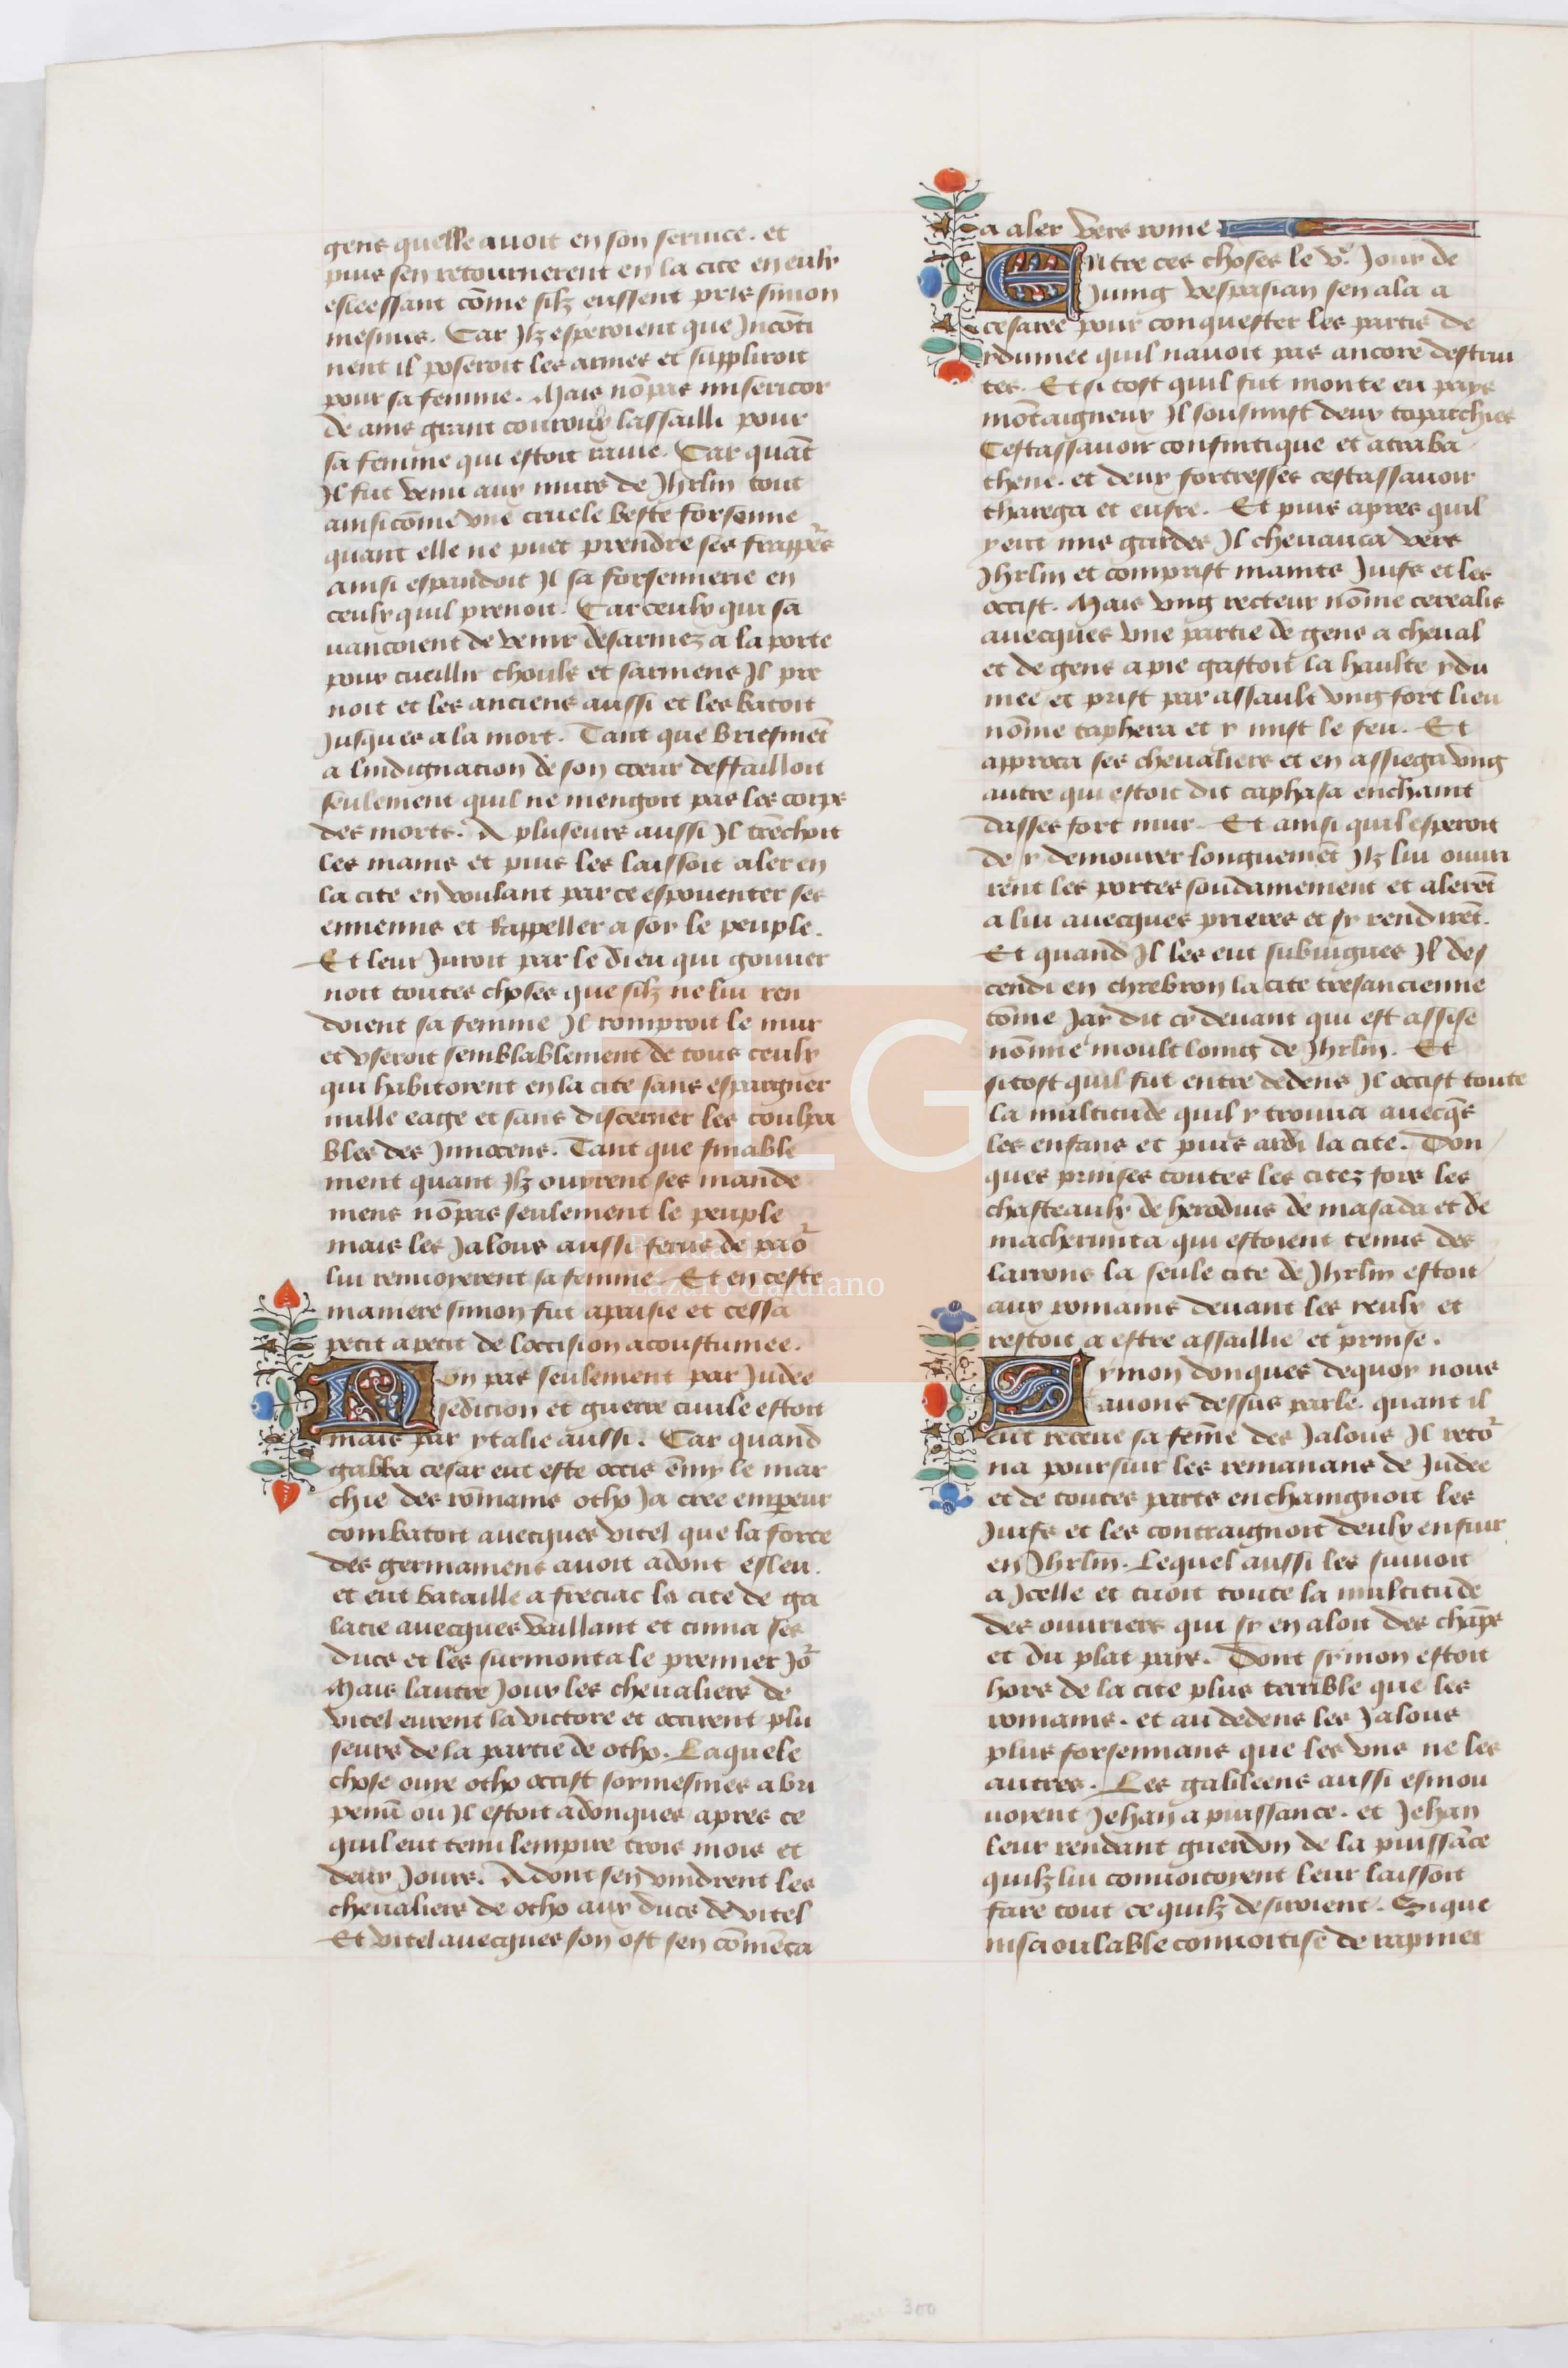 gens quelle auoit en son seruice. et
puis sen retournerent en la cite en eulx
esleessant cõme silz eussent pris simon
mesmes. Car Jlz esperoient que Jncõti
nent il poseroit les armes et suppliroit
pour sa femme. Mais nõpas misericor
de ains grant couroux lassailli pour
sa femme qui estoit rauie. Car quãt
Jl fut venu aux murs de Jhrlm tout
ainsi cõme vne cruele beste forsenne
quant elle ne puet prendre ses frappẽs
ainsi espandoit Jl sa forsennerie en
ceulx quil prenoit. Car ceulx qui sa
uancoient de venir desarmez a la porte
pour cueillir chouls et sarmens Jl pre
noit et les anciens aussi et les batoit
Jusques a la mort. Tant que briefmẽt
a lindignacion de son coeur deffailloit
seulement quil ne mengoit pas les corps
des morts. A pluseurs aussi Jl trẽchoit
les mains et puis les laissoit aler en
la cite en voulant par ce espouenter ses
ennemis et Rappeller a soy le peuple.
Et leur Juroit par le dieu qui gouuer
noit toutes choses que silz ne lui ren
doient sa femme Jl romproit le mur
et vseroit semblablement de tous ceulx
qui habitoient en la cite sans espargner
nulle eage et sans discerner les coulpa
bles des Jnnocens. Tant que finable
ment quant Jlz ouyrent ses mande
mens nõpas seulement le peuple
mais les Jalous aussi ferus de paor
lui renuoyerent sa femme. Et en ceste
maniere simon fut apaisie et cessa
petit a petit de loccision acoustumee.
Non pas seulement par Judee
sedicion et guerre ciuile estoit
mais par ytalie aussi. Car quand
gabba cesar eut este occis ẽmy le mar
chie des rõmains otho Ja cree empeur
combatoit auecques vitel que la force
des germamens auoit adont esleu.
et eut bataille a freciac la cite de ga
lacie auecques vaillant et cinna ses
ducs et les surmonta le premier Jor
Mais lautre Jour les cheualiers de
vitel eurent la victore et occirent plu
seurs de la partie de otho. Laquele
chose ouye otho occist soymesmes a bri
penũ ou Jl estoit adonques apres ce
quil eut tenu lempire trois mois et
deux Jours. Adont sen vindrent les
cheualiers de otho aux ducs de vitel
Et vitel auecques son ost sen cõmẽca
a aler vers rome
Entre ces choses le v.e Jour de
Juing vespasian sen ala a
cesaree pour conquester les partis de
ydumee quil nauoit pas ancore destrui
tes. Et si tost quil fut monte en pays
mõtaigneux Jl sousmist deux toparchies
Cestassauoir confintique et atraba
thene. et deux fortresses cestassauoir
tharega et eufre. Et puis apres quil
y eut mis gardes Jl cheuauca vers
Jhrlm et comprist mains Juifs et les
occist. Mais vng recteur nõme cerealis
auecques vne partie de gens a cheual
et de gens a pie gastoit la haulte ydu
mee et prist par assault vng fort lieu
nõme taphera et y mist le feu. Et
approca ses cheualiers et en assiega vng
autre qui estoit dit caphasa enchaint
dasses fort mur. Et ainsi quil esperoit
de y demourer longuemẽt Jlz lui ouuri
rent les portes soudainement et alerẽt
a lui auecques prieres et sy rendirẽt.
Et quand Jl les eut subiugues Jl des
cendi en chrebron la cite tresancienne
cõme Jay dit cy deuant qui est assise
nõmie moult loing de Jhrlm. Et
si tost quil fut entre dedens Jl occist toute
la multitude quil y trouua auecq̃s
les enfans et puis ardi la cite. Don
ques prinses toutes les citez fors les
chasteaulx de herodius de masada et de
macherunta qui estoient tenus des
larrons la seule cite de Jhrlm estoit
aux romains deuant les yeulx et
restoit a estre assaillie et prinse.
Symon donques dequoy nous
auons dessus parle. quant il
eut receue sa feme des Jalous Jl retor
na poursuir les remanans de Judee
et de toutes parts enchaingnoit les
Juifs et les contraignoit deulx enfuir
en Jhrlm. Lequel aussi les suiuoit
a Jcelle et tuoit toute la multitude
des ouuriers qui sy en aloit des chãps
et du plat pays. Dont symon estoit
hors de la cite plus terrible que les
romains. et au dedens les Jalous
plus forsennans que les vns ne les
autres. Les galileens aussi esmou
uoyent Jehan a puissance. et Jehan
leur rendant guerdon de la puissãce
quilz lui conuoitoyent leur laissoit
faire tout ce quilz desiroient. Sique
insaoulable conuoitise de rapiner
LG
Fundación
Lázaro Galdiano
300